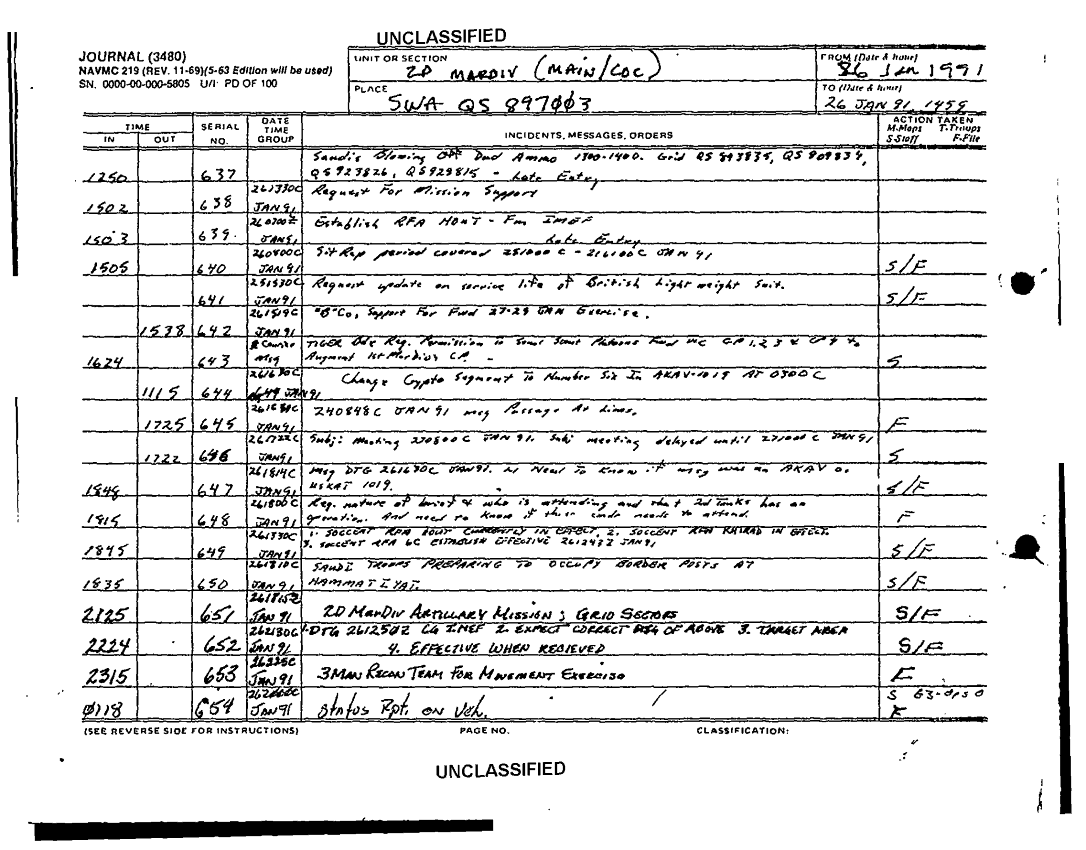 UNCLASSIFIED
JOURNAL (3480)
NAVMC 219 (REV. 11-69)(5-63 Edition will be used)
SN. 0000-00-000-5805 U/I: PD OF 100
UNIT OR SECTION
2D MARDIV (MAIN/COC)
PLACE
SWA QS 897003
FROM (Date & hour)
26 Jan 1991
TO (Date & hour)
26 JAN 91, 1459
TIME
IN OUT
SERIAL NO.
DATE TIME GROUP
INCIDENTS, MESSAGES, ORDERS
ACTION TAKEN
M-Maps T-Troops
S-Staff F-File
Saudis Blowing Off Dud Ammo 1300-1400. Grid QS 893835, QS 909834,
1250 637 QS 923826, QS929815 - Late Entry
261330C Request For Mission Support
1502 638 JAN 91
260700Z Establish RFA HONT - Fm IMEF
1503 639 JAN 91 Late Entry
260800C Sit Rep period covered 251000C - JAN 91
1505 640 JAN 91 S/F
251530C Request update on service life of British Light weight Suit.
641 JAN 91 S/F
261519C "B" Co, Support For Fwd 27-29 JAN Exercise.
1538 642 JAN 91
TIGER Bde Req. Permission to Send Scout Platoons Fwd
1624 643 Msg Augment 1st MarDiv's CP. - S
261630C Change Crypto Segment To Number Six In AKAV-1019 AT 0300C
1115 644 JAN 91
240848C JAN 91 msg Passage of Lines.
1725 645 JAN 91 F
261722C Subj: Meeting 270800C JAN 91. Subj meeting delayed until 271000C JAN 91
1722 646 JAN 91 S
261814C Msg DTG 261630C JAN 91. 2d Need To Know if msg was an AKAV or
1848 647 JAN 91 USKAT 1019. S/F
261800C Req. nature of brief & who is attending and what 2d Tanks has an
1815 648 JAN 91 operation. And need to know if these cmds needs to attend. F
261330C 1. SOCCENT RFA CURRENTLY IN EFFECT, 2. SOCCENT RFA IN EFFECT.
1845 649 JAN 91 3. SOCCENT RFA 6C ESTABLISH EFFECTIVE 261243Z JAN 91 S/F
261810C SAUDI TROOPS PREPARING TO OCCUPY BORDER POSTS AT
1835 650 JAN 91 HAMMATIYAT. S/F
261815Z
2125 651 JAN 91 2D MARDIV ARTILLARY MISSION; GRID SECTORS S/F
262130C 1. DTG 261250Z CG IMEF 2. EXPECT CORRECT MSG OF ABOVE 3. TARGET AREA
2224 652 JAN 91 4. EFFECTIVE WHEN RECIEVED S/F
2315 653 JAN 91 3 MAN RECON TEAM FOR MOVEMENT EXERCISE F
0118 654 JAN 91 Status Rpt. on Veh. S G3-Ops O
F
(SEE REVERSE SIDE FOR INSTRUCTIONS) PAGE NO. CLASSIFICATION:
UNCLASSIFIED